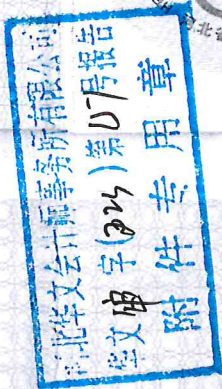 河北华文会计师事务所有限公司
华文审字(2024)第017号报告
附件专用章